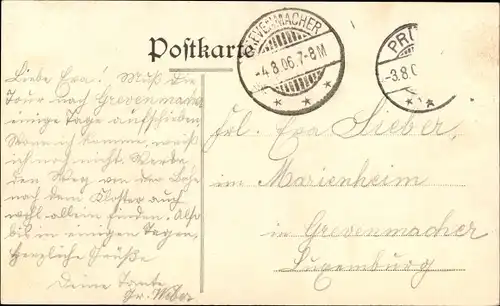 Postkarte
GREVENMACHER
-4.8.06.7-8M
PR
-3.8.0
Liebe Eva! Muß die
Tour nach Grevenmach
einige Tage aufschieben
Wann ich komme, weiß
ich noch nicht. Werde
den Weg von der Bahn
nach dem Kloster auch
wohl allein finden. Also
bis in einigen Tagen,
Herzliche Grüße
Deine Tante
Fr. Weber
Frl. Eva Sieber,
im Marienheim
in Grevenmacher
Luxemburg